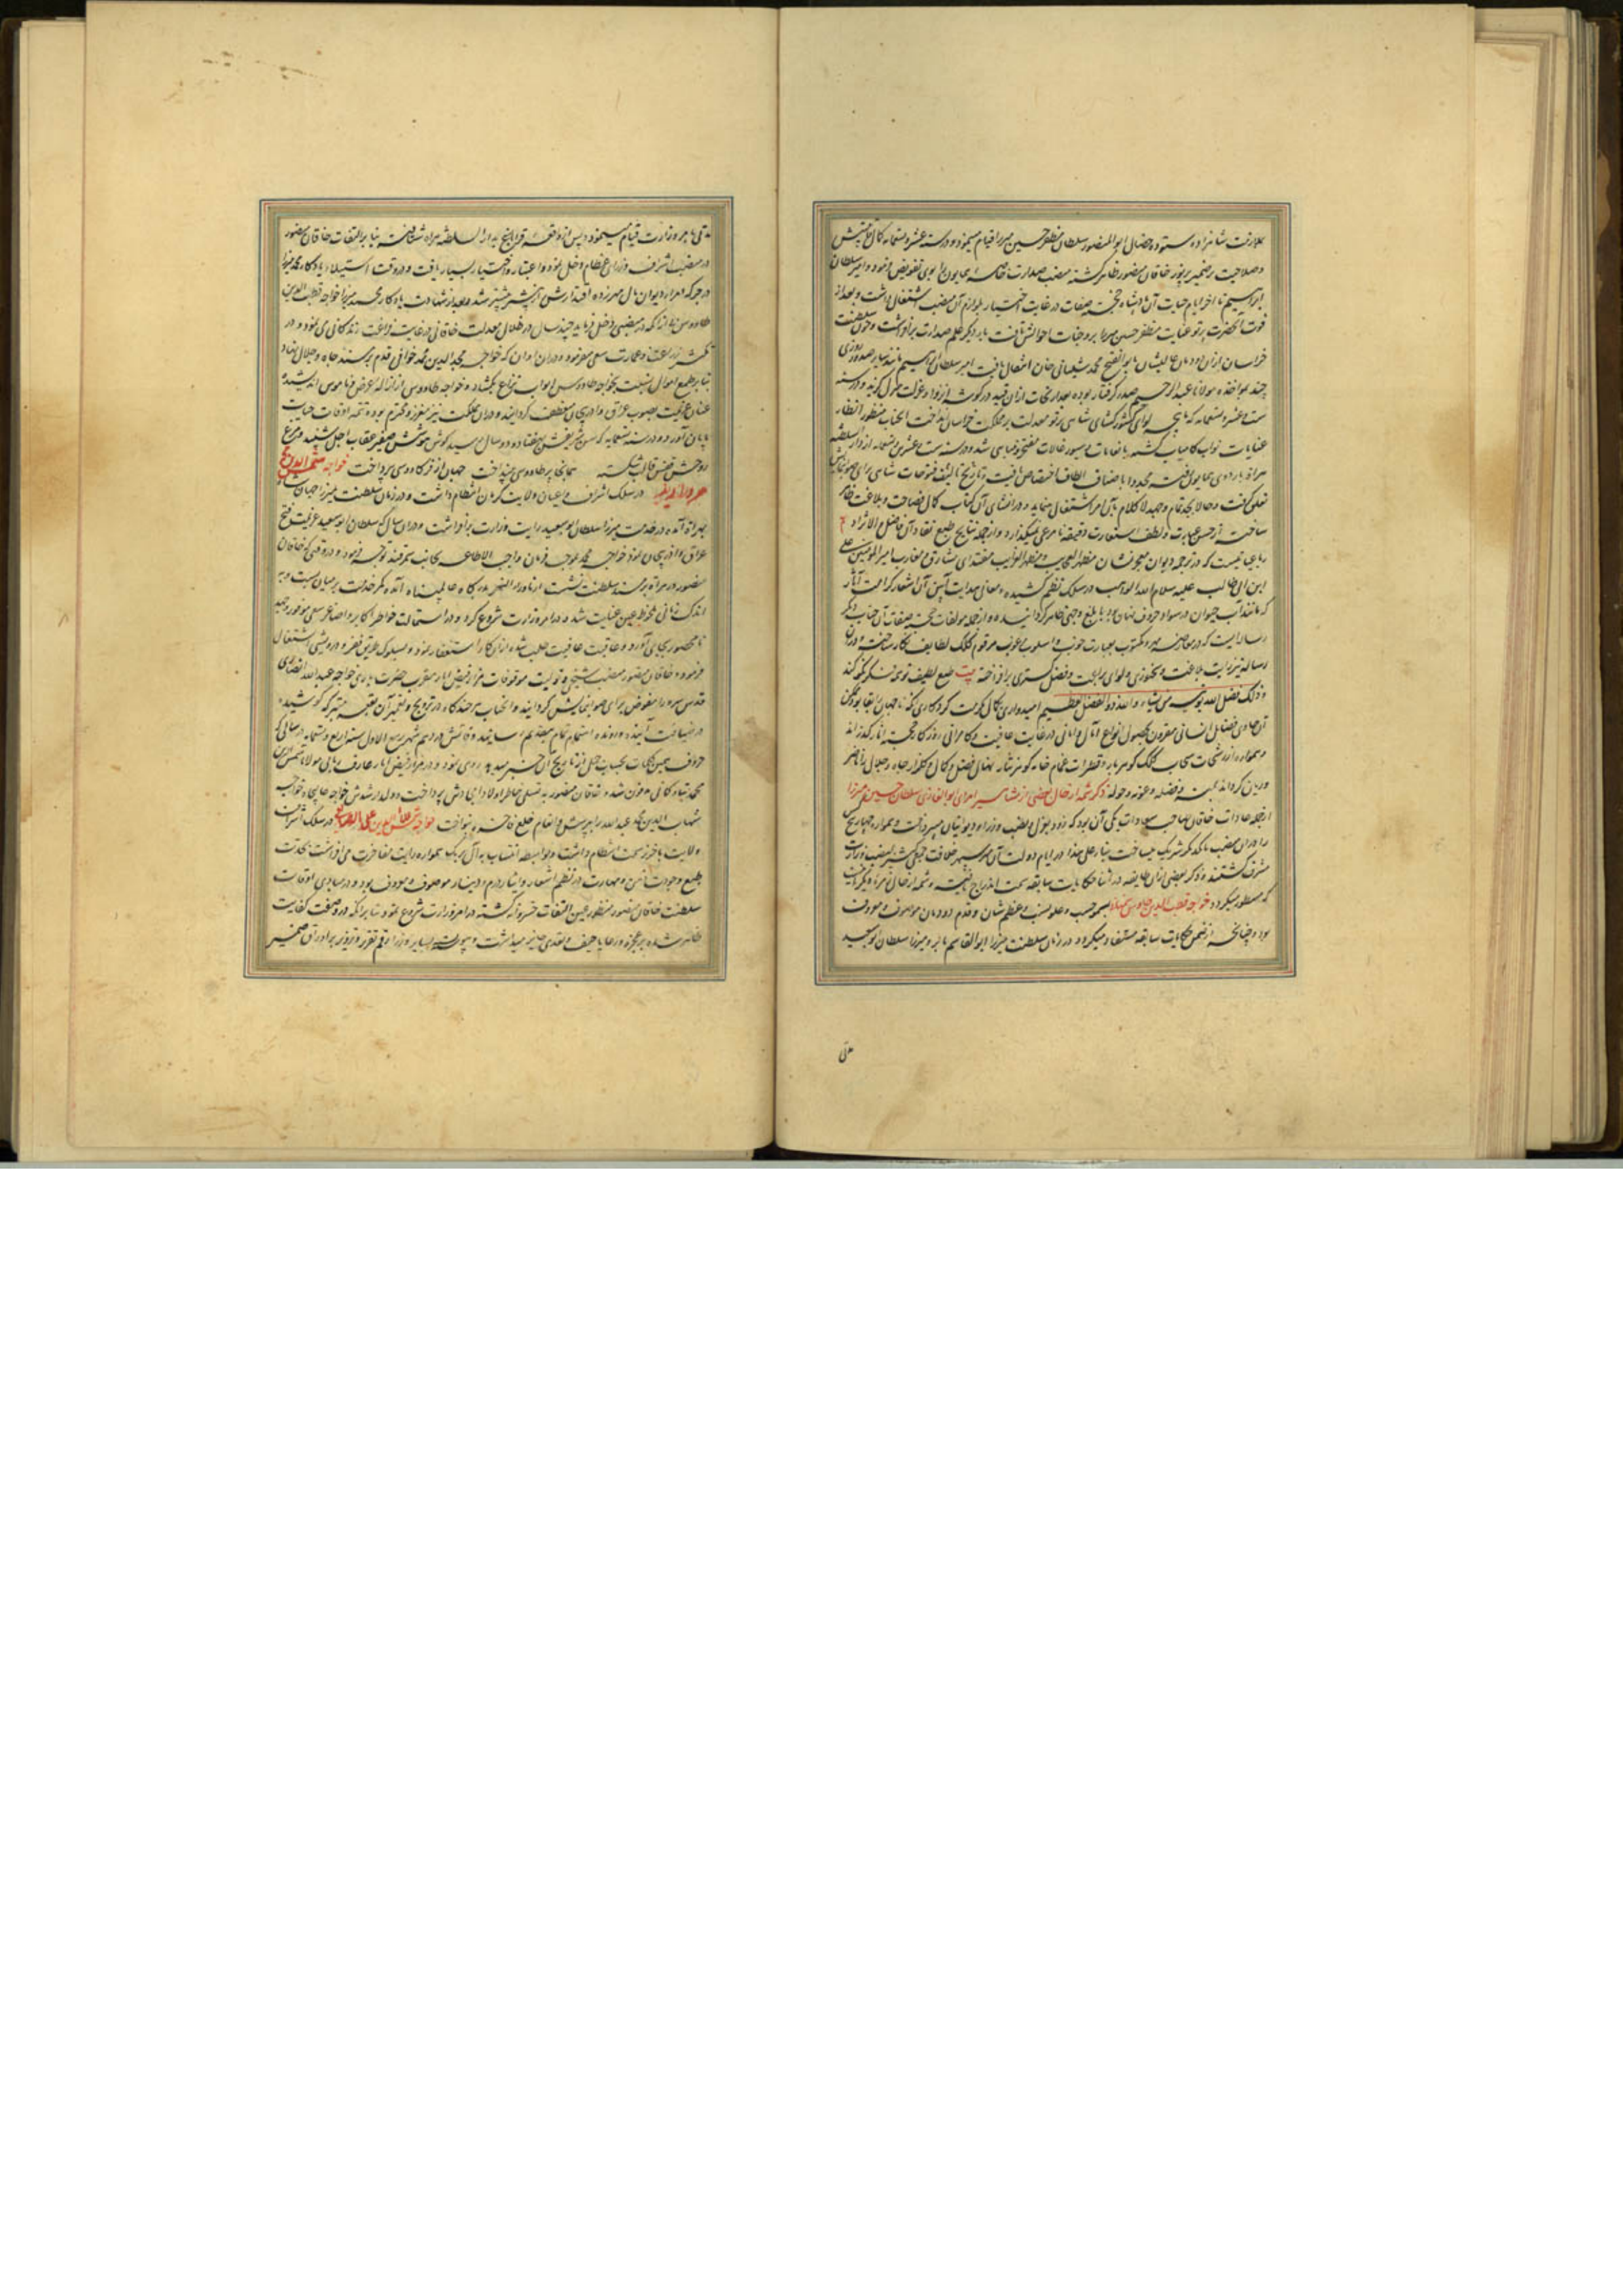 بملازمت شاهزاده ستوده خصال ابوالمنصور سلطان مظفر حسین میرزا قیام مینمود و در سنه عشر و تسعمایه کمال
و صلاحیت بر ضمیر پرنور خاقان منصور ظاهر کشته منصب صدارت خاصه همایون را بوی تفویض فرمود و امیر سلطان
ابراهیم تا آخر ایام حیات آن پادشاه خجسته صفات در غایت اختیار بلوازم آن منصب اشتغال داشت و بعد از
فوت آنحضرت پرتو عنایت مظفر حسین میرزا بر وجنات احوالش تافت بار دیگر علم صدارت برافراشت و چون سلطنت
خراسان از آن دودمان عالیشان بابوالفتح محمد شیبانی خان انتقال یافت امیر سلطان ابراهیم مانند سایر صدور روزی
چند بمواخذه مولانا عبدالرحیم صدر گرفتار بوده بعد از نجات از آن قید در گوشه انزوا و عزلت منزل گزید و در سنه
ست عشر و تسعمایه که ماهچه لوای کشورگشای شاهی پرتو معدلت بر مملکت خراسان انداخت آنجناب منظور انظار
عنایات نواب کامیاب کشته بانعامات و سیورغالات مفتخر و مباهی شد و در سنه ست عشرین و تسعمایه از دارالسلطنه
هراة باردوی همایون رفته مجددا باصناف الطاف اختصاص یافت و تاریخ تالیف فتوحات شاهی برای
تعلق گرفت و حالا بجد تمام و جهد لا کلام بآن امر اشتغال مینماید و در انشای آن کتاب کمال فصاحت و بلاغت ظاهر
ساخته از حسن عبارت و لطف استعارت دقیقه نامرعی نمیگذارد و از جمله نتایج طبع نقاد آن فاضل
رباعیاتیست که در ترجمه دیوان معجز نشان مظهر العجایب و مظهر الغرایب مقتدای مشارق و مغارب امیرالمومنین علی
ابن ابی طالب علیه سلام الله الواهب در سلک نظم کشیده و معانی هدایت آیین آن اشعار کرامت آثار
که مانند آب حیوان در سواد حروف نهان بود بابلغ وجهی ظاهر گردانیده و از جمله مولفات خجسته صفات آن جناب دیگر
رساله ایست که در معارضه مهر و مکتوب بعبارت خوب و اسلوب مرغوب مرقوم کلک لطایف نگار ساخته و در آن
رساله نیز رایت بلاغت و سخنوری و لوای براعت و فضل گستری برافراخته بیت طبع لطیف
و ذلک فضل الله یوتیه من یشاء والله ذوالفضل العظیم امیدواری بکمال مکرمت کردگاری که تا جهان را بقا بود ممکن
آن حاوی فضایل انسانی مقرون بحصول انواع آمال و امانی در غایت عافیت و کامرانی روزگار خجسته آثار گذراند
و همواره از رشحات سحاب کلک گوهربار و قطرات غمام خامه گوهر نثار نهال فضل و کمال و گلزار جاه و جلال را ناضر
و ریان گرداند بمنه و فضله و عونه و حوله ذکر شمه از حال بعضی از مشاهیر وزرای ابوالغازی سلطان حسین میرزا
از جمله عادات خاقان صاحب سعادات یکی آن بود که زود بعزل و نصب وزرا و دیوانیان میپرداخت و همواره
را در آن منصب با یکدیگر شریک میساخت بنابرعلی هذا در ایام دولت آن خورشید سپهر خلافت جمعی کثیر بمنصب وزارت
مشرف گشتند و ذکر بعضی از آن طایفه در اثنا حکایات سابقه سمت اندراج یافته و شمه از حال زمره دیگر
که مسطور میگردد خواجه قطب الدین طاوس سمنانی بسمو حسب و علو نسب و عظم شان و قدم دودمان موصوف و معروف
بود و چنانچه از ضمن حکایات سابقه مستفاد میگردد در زمان سلطنت میرزا ابوالقاسم بابر و میرزا سلطان ابوسعید
مدتی
مدتی بامر وزارت قیام مینمود و پس از واقعه قراباغ بدارالسلطنه هراة شتافته بنا بر التفات خاقان منصور
در منصب اشرف وزرای عظام دخل نمود و اعتبار و اختیار بسیار یافت و در وقت استیلاء یادگار محمد میرزا
در جرگه امراء دیوان مال مهر زده اقتدارش از پیشتر بیشتر شد و بعد از شهادت یادگار محمد میرزا خواجه قطب الدین
طاووس بی آنکه در منصبی دخل فرماید چند سال در ظلال معدلت خاقانی در غایت فراغت زندگانی می نمود و در
تکثیر زراعت و عمارت سعی میفرمود و در آن اوان که خواجه مجدالدین محمد خوافی قدم بر مسند جاه و جلال نهاد
بنا بر طمع اموال نسبت بخواجه طاووس ابواب نزاع بگشاد و خواجه طاووس از ازاله عرض و ناموس اندیشیده
عنان عزیمت بصوب عراق و آذربایجان منعطف گردانید و در آن مملکت نیز معزز و محترم بوده تتمه اوقات حیات
بپایان آورد و در سنه تسعمایه که سن شریفش بهفتاد و دو سال رسید گوش هوشش صفیر عقاب اجل شنید و مرغ
روحش قفس قالب شکسته بجای پر طاووسی بینداخت جهان از فر کاووسی بپرداخت خواجه شمس الدین محمد
مروارید در سلک اشراف و اعیان ولایت کرمان انتظام داشت و در زمان سلطنت میرزا جهان شاه
بهراة آمده در خدمت میرزا سلطان ابوسعید رایت وزارت برافراشت و در آن سال که سلطان ابوسعید عزیمت فتح
عراق و آذربیجان نمود خواجه محمد بموجب فرمان واجب الاطاعه بجانب سمرقند توجه فرمود و در وقتی که خاقان
منصور در هراة بر مسند سلطنت نشست از ماوراءالنهر بدرگاه عالمپناه آمده کمر خدمت بر میان بست و به
اندک زمانی ملحوظ عین عنایت شده در امر وزارت شروع کرد و در استمالت خواطر اکابر و اصاغر سعی موفور و جهد
نامحصور بجای آورد و عاقبت عافیت طلب شده از آن کار استعفا نمود و بسلوک طریق فقر و درویشی اشتغال
فرمود و خاقان منصور منصب شیخی و تولیت موقوفات مزار فیض آثار مقرب حضرت باری خواجه عبدالله انصاری
قدس سره را مفوض برای صوابنمایش گردانید و آنجناب هر چندگاه در ترویج و تعمیر آن بقعه متبرکه کوشیده
در ضیافت آینده و رونده اهتمام تمام بتقدیم رسانید و فاتش در دهم شهر ربیع الاول سنه اربع و تسعمایه
حروف بحساب جمل از تاریخ آن خبر میدهد روی نمود و در مزار فیض آثار عارف ربانی مولانا شمس الدین
محمد تبادکانی مدفون شد و خاقان منصور به تسلی خاطر اولاد امجادش پرداخت و ولد ارشدش خواجه عالیجاه خواجه
شهاب الدین محمد عبدالله را بپرسش و انعام خلع فاخره بنواخت خواجه در سلک اشراف
ولایت باخرز سمت انتظام داشت و بواسطه انتساب به آل برمک همواره رایت مفاخرت می افراشت بجدت
طبع وجودت ذهن و مهارت در نظم اشعار و ایثار درم و دینار موصوف و معروف بود و در مبادی اوقات
سلطنت خاقان منصور منظور عین التفات خسروانه گشته در امر وزارت شروع نمود بنا بر آنکه در وصفت کفایت
ظاهر شده بر عجزه و رعایا حیف و تعدی جایز میداشت و پیوسته بسایر وزرا رقم تقریر و تزویر بر اوراق ضمیر